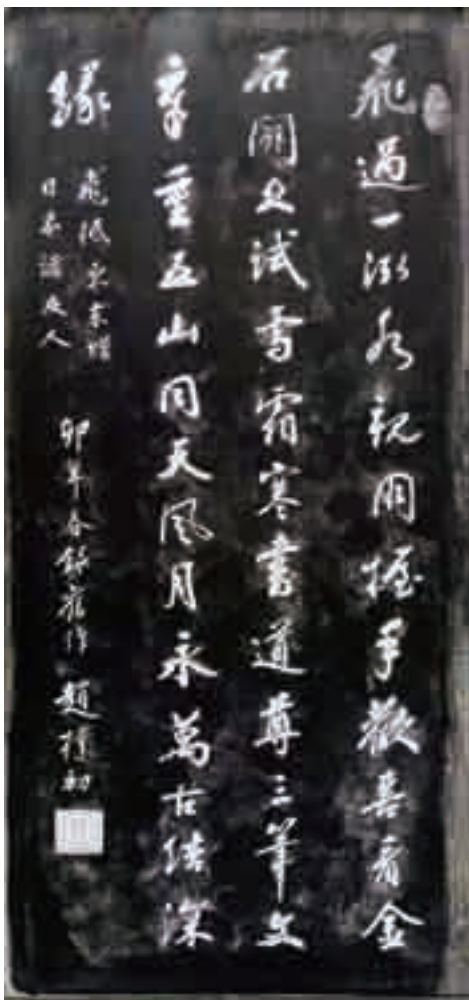 飛過一泓水親朋握手歡喜看金
石開久試雪霜寒書道尊三筆文
章重五山同天風月永萬古結深
緣
飛抵東京贈
日本諸友人
卯年春錄舊作 趙樸初